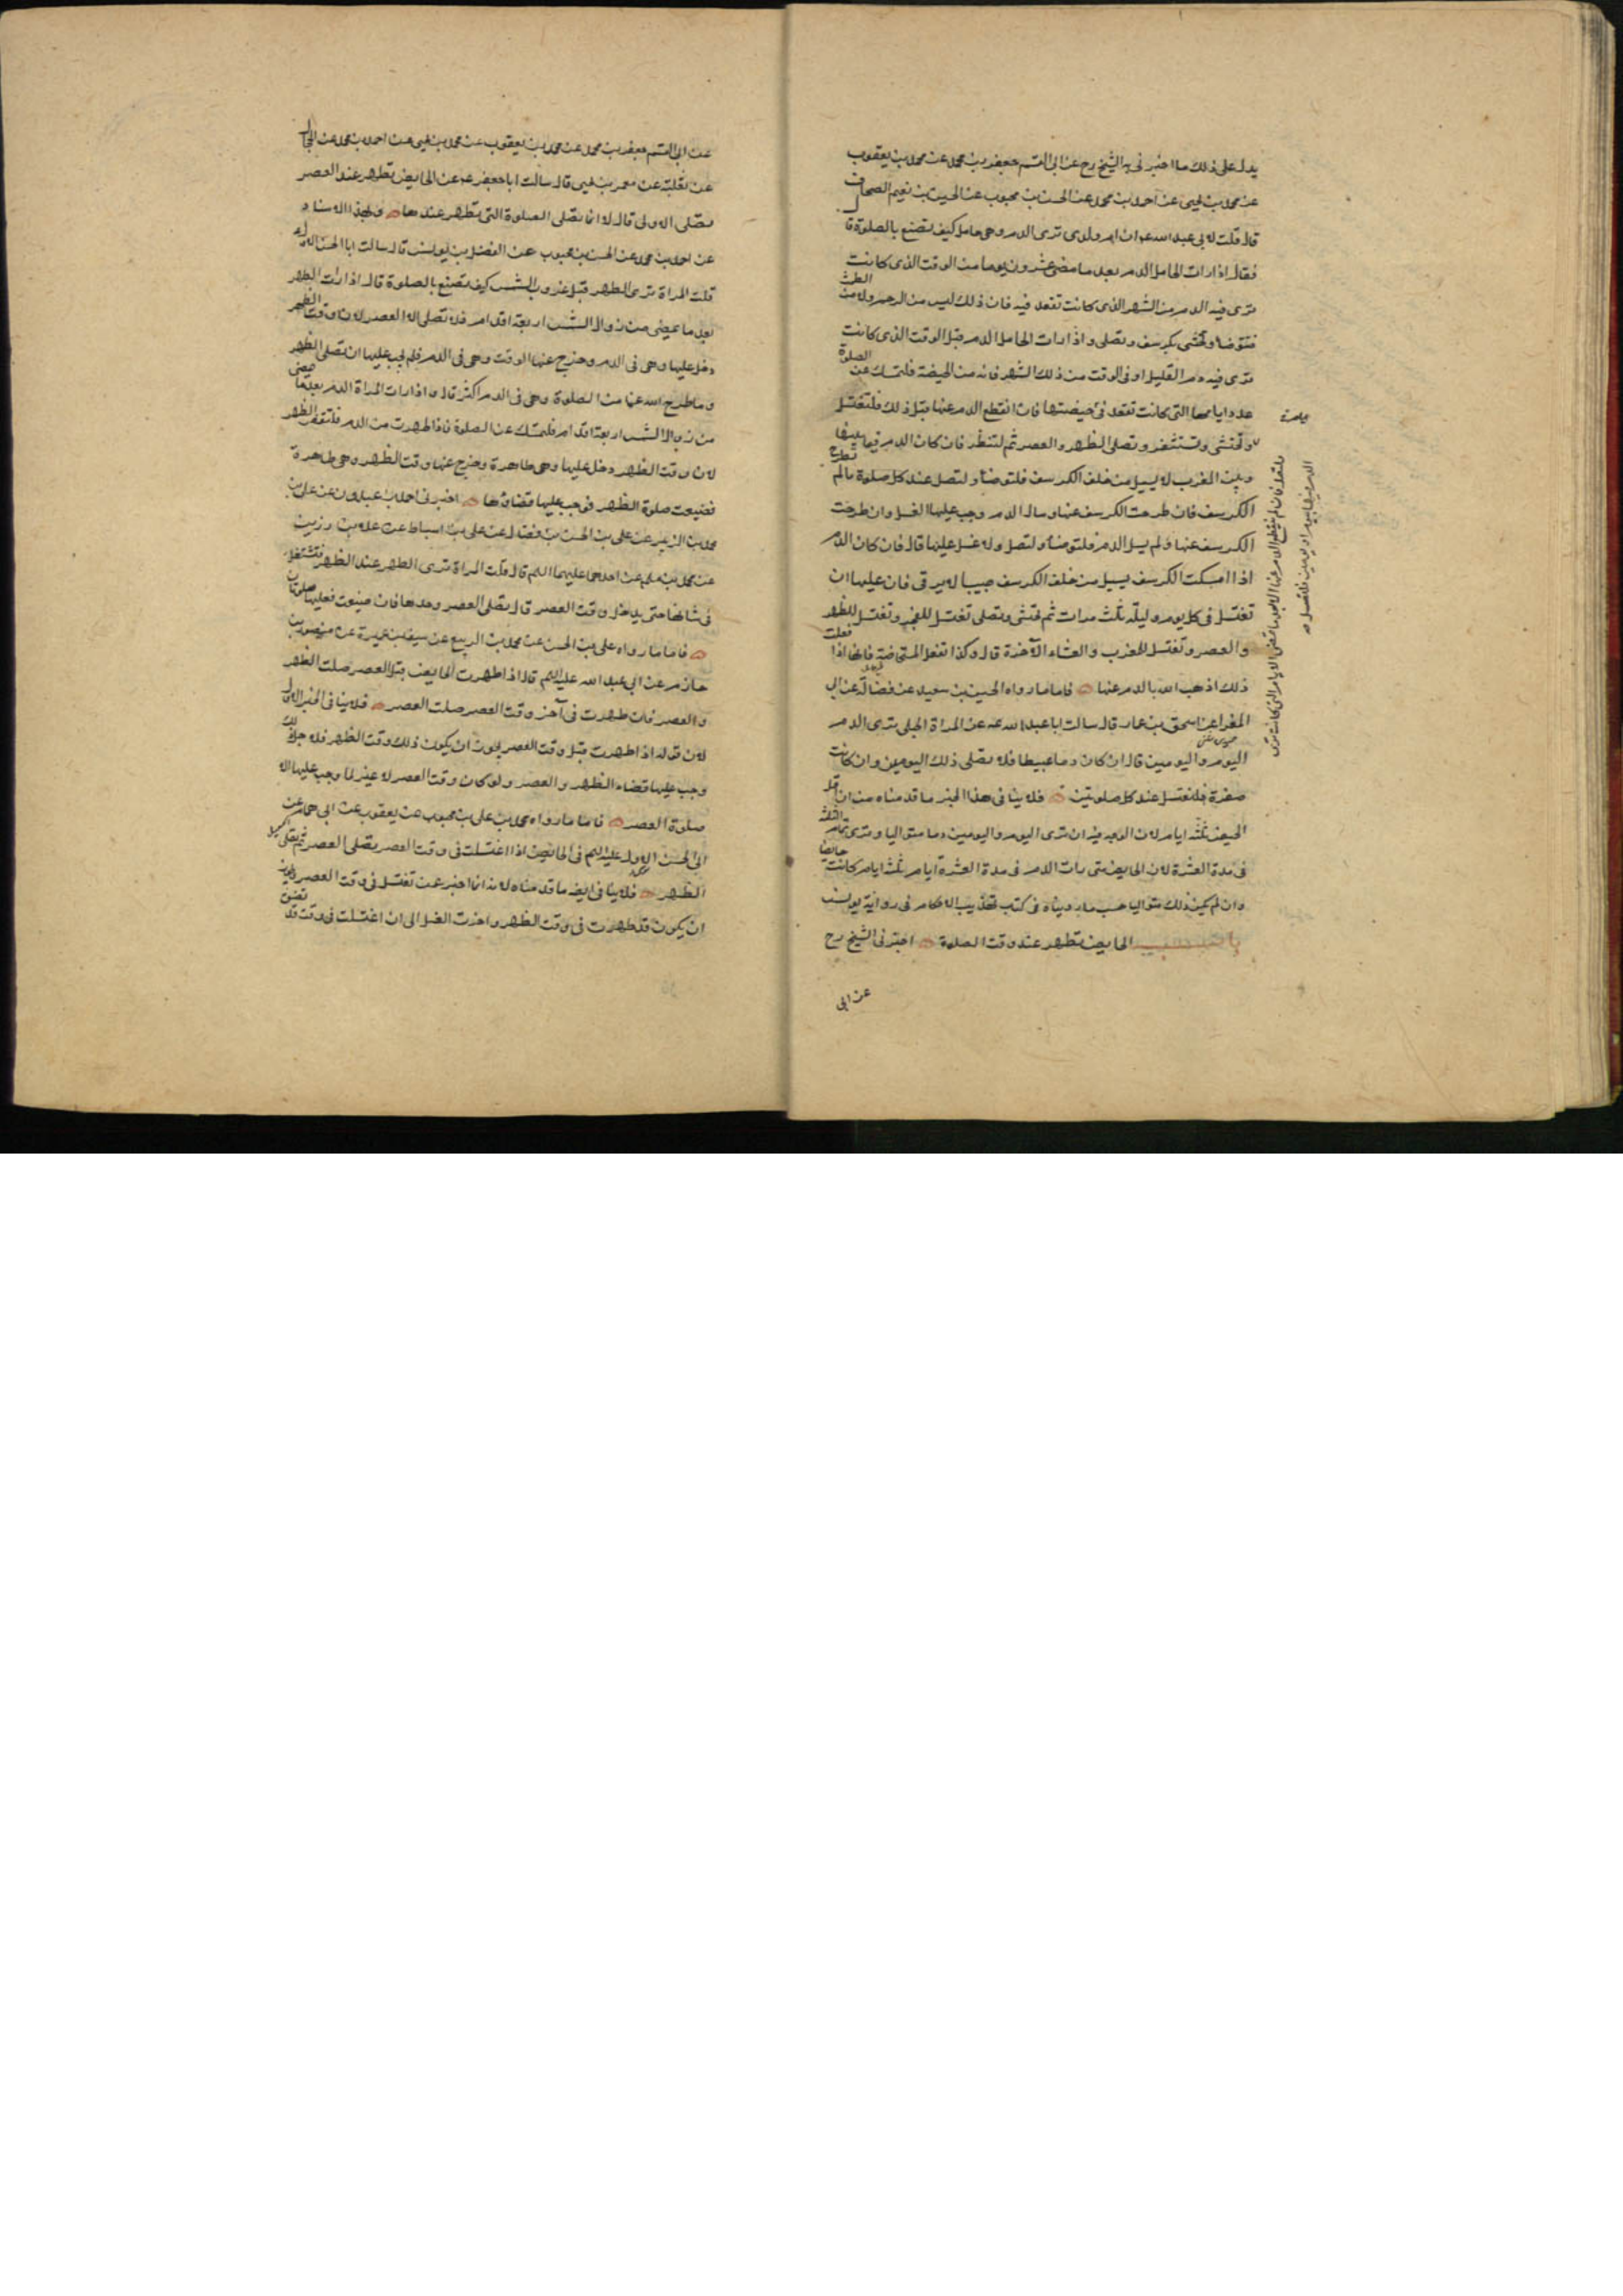 يدل على ذلك ما اخبرنى به الشيخ رح عن ابى القسم جعفر بن محمد عن محمد بن يعقوب
عن محمد بن يحيى عن احمد بن محمد عن الحسن بن محبوب عن الحسين بن نعيم الصحاف
قال قلت لابى عبد الله ع ان ام ولدى ترى الدم وهى حامل كيف تصنع بالصلوة قال
فقال اذا رات الحامل الدم بعد ما مضى عشرون يوما من الوقت الذى كانت
ترى فيه الدم من الشهر الذى كانت تقعد فيه فان ذلك ليس من الرحم ولا من الطمث
فتتوضا وتحتشى بكرسف وتصلى واذا رات الحامل الدم قبل الوقت الذى كانت
ترى فيه الدم القليل او فى الوقت من ذلك الشهر فانه من الحيضة فلتمسك عن الصلوة
عدد ايامها التى كانت تقعد فى حيضتها فان انقطع الدم عنها قبل ذلك فلتغتسل
ولتصل فان لم ينقطع الدم عنها الا بعد ما تمضى الايام التى كانت ترى
الدم فيها بيوم او يومين فلتغتسل
وتحتشى ولتستثفر وتصلى الظهر والعصر ثم لتنظر فان كان الدم فيما بينها
وبين المغرب لا يسيل من خلف الكرسف فلتتوضأ ولتصل عند كل صلوة ما لم تطرح
الكرسف فان طرحت الكرسف عنها وسال الدم وجب عليها الغسل وان طرحت
الكرسف عنها ولم يسل الدم فلتتوضأ ولتصل ولا غسل عليها قال فان كان الدم
اذا امسكت الكرسف يسيل من خلف الكرسف صبيبا لا يرقى فان عليها ان
تغتسل فى كل يوم وليلة ثلث مرات ثم تحتشى وتصلى تغتسل للفجر وتغتسل للظهر
والعصر وتغتسل للمغرب والعشاء الآخرة قال وكذا تفعل المستحاضة فانها اذا فعلت
ذلك اذهب الله بالدم عنها فاما ما رواه الحسين بن سعيد عن فضالة عن ابى
المغرا عن اسحق بن عمار قال سالت ابا عبد الله ع عن المراة الحبلى ترى الدم
اليوم واليومين قال ان كان دما عبيطا فلا تصلى ذلك اليومين وان كانت
صفرة فلتغتسل عند كل صلوتين فلا ينافى هذا الخبر ما قدمناه من ان اقل
الحيض ثلثة ايام لان الوجه فيه ان ترى اليوم واليومين دما متواليا وترى تمام الثلثة
فى مدة العشرة لان الحايض متى رات الدم فى مدة العشرة ايام ثلثة ايام كانت حائضا
وان لم يكن ذلك متواليا حسب ما رويناه فى كتب تهذيب الاحكام فى رواية يونس
باب الحايض تطهر عند وقت الصلوة اخبرنى الشيخ رح
عن ابى
عن ابى القسم جعفر بن محمد عن محمد بن يعقوب عن محمد بن يحيى عن احمد بن محمد عن الحجال
عن ثعلبة عن معمر بن يحيى قال سالت ابا جعفر ع عن الحايض تطهر عند العصر
تصلى الاولى قال لا انما تصلى الصلوة التى تطهر عندها وبهذا الاسناد
عن احمد بن محمد عن الحسن بن محبوب عن الفضل بن يونس قال سالت ابا الحسن الاول
قلت المراة ترى الطهر قبل غروب الشمس كيف تصنع بالصلوة قال اذا رات الطهر
بعد ما يمضى من زوال الشمس اربعة اقدام فلا تصلى الا العصر لان وقت الظهر
دخل عليها وهى فى الدم وخرج عنها الوقت وهى فى الدم فلم يجب عليها ان تصلى الظهر
وما طرح الله عنها من الصلوة وهى فى الدم اكثر قال واذا رات المراة الدم بعد ما يمضى
من زوال الشمس اربعة اقدام فلتمسك عن الصلوة فاذا طهرت من الدم فلتقض الظهر
لان وقت الظهر دخل عليها وهى طاهرة وخرج عنها وقت الظهر وهى طاهرة
فضيعت صلوة الظهر فوجب عليها قضاؤها اخبرنى احمد بن عبدون عن على بن
محمد بن الزبير عن على بن الحسن بن فضال عن على بن اسباط عن علاء بن رزين
عن محمد بن مسلم عن احدهما عليهما السلم قال قلت المراة ترى الطهر عند الظهر فتشتغل
فى شانها حتى يدخل وقت العصر قال تصلى العصر وحدها فان ضيعت فعليها صلوتان
فاما ما رواه على بن الحسن عن محمد بن الربيع عن سيف بن عميرة عن منصور بن
حازم عن ابى عبد الله عليه السلم قال اذا طهرت الحايض قبل العصر صلت الظهر
والعصر فان طهرت فى آخر وقت العصر صلت العصر فلا ينافى الخبر الاول
لان قوله اذا طهرت قبل وقت العصر يجوز ان يكون ذلك وقت الظهر فلاجل ذلك
وجب عليها قضاء الظهر والعصر ولو كان وقت العصر لا غير لما وجب عليها الا
صلوة العصر فاما ما رواه محمد بن على بن محبوب عن يعقوب عن ابى همام عن
ابى الحسن الاول عليه السلم فى الحايض اذا اغتسلت فى وقت العصر تصلى العصر ثم تصلى
الظهر فلا ينافى ايضا ما قدمناه لانه انما اخبر عمن تغتسل فى وقت العصر ويجوز
ان يكون قد طهرت فى وقت الظهر واخرت الغسل الى ان اغتسلت فى وقت قد تضيق